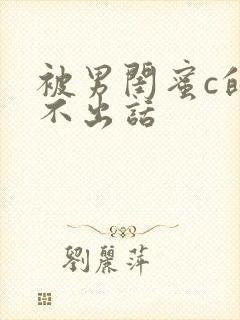 被男閨蜜c的說
不出話
劉麗萍